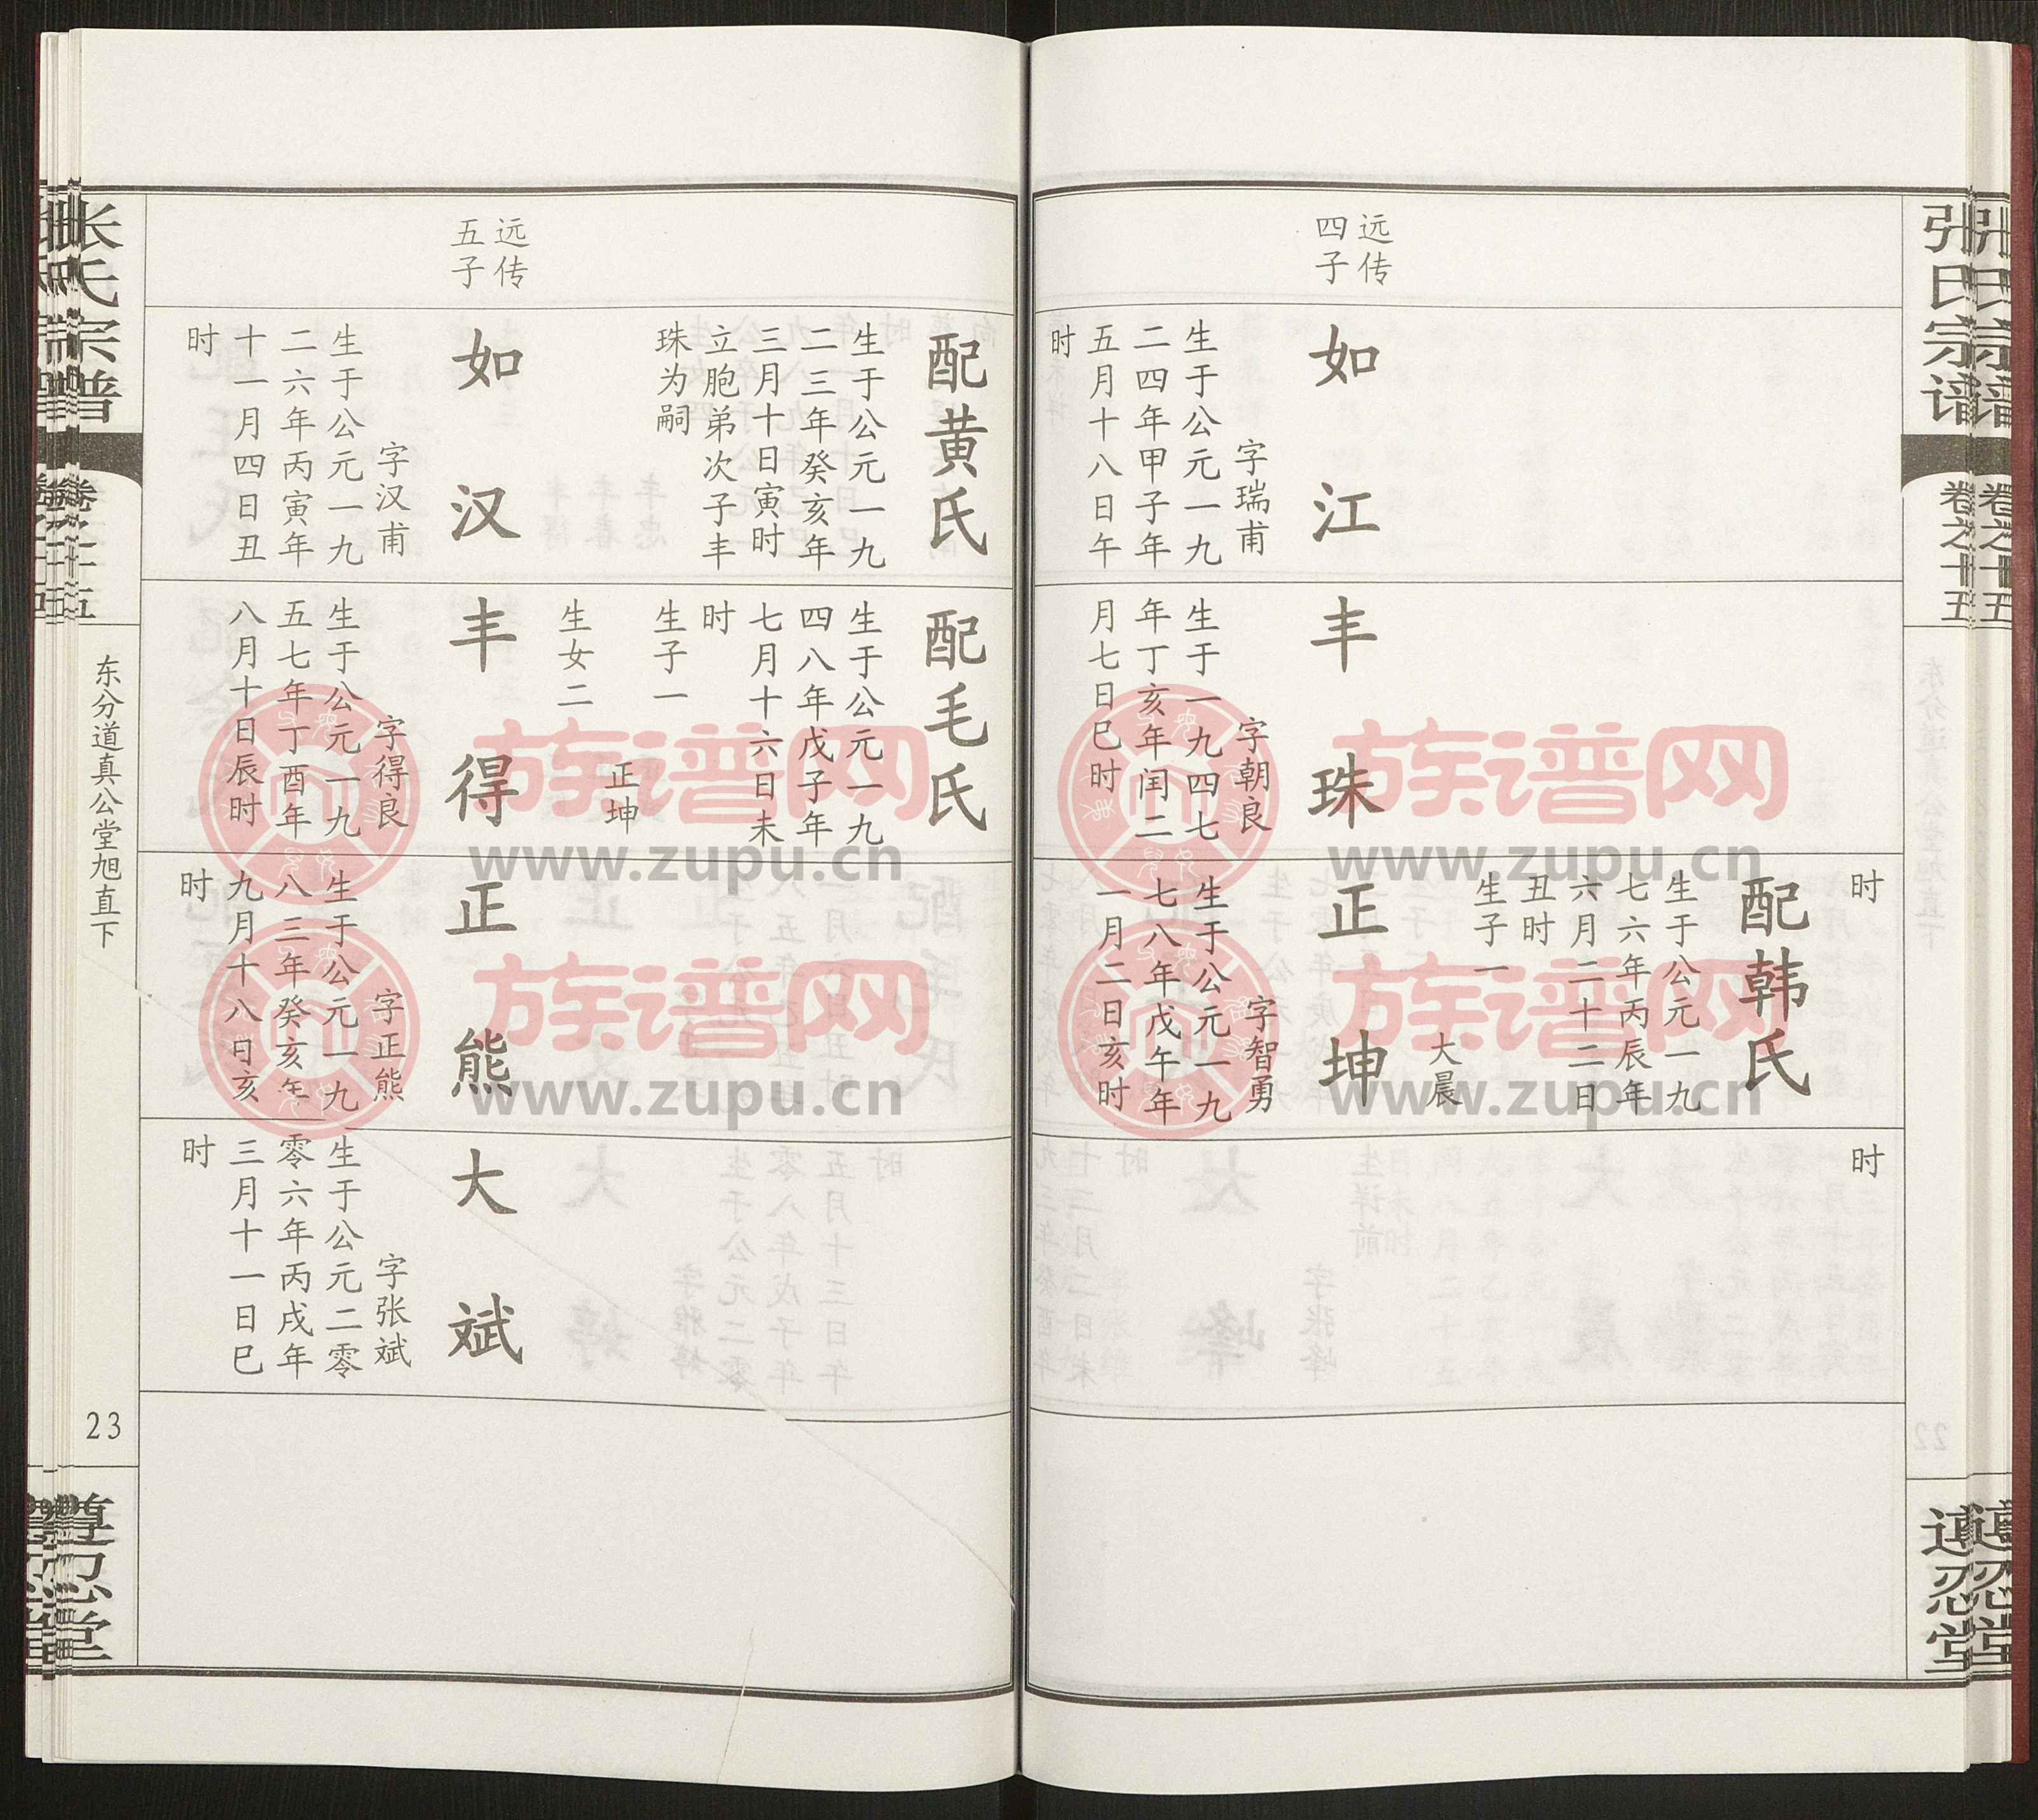 张氏宗谱
卷之十五
遵忍堂
远传
四子
如江
字瑞甫
生于公元一九
二四年甲子年
五月十八日午
时
丰珠
字朝良
生于一九四七
年丁亥年闰二
月七日巳时
时
配韩氏
生于公元一九
七六年丙辰年
六月二十二日
丑时
生子一
大晨
正坤
字智勇
生于公元一九
七八年戊午年
一月二日亥时
时
配黄氏
生于公元一九
二三年癸亥年
三月十日寅时
立胞弟次子丰
珠为嗣
远传
五子
如汉
字汉甫
生于公元一九
二六年丙寅年
十一月四日丑
时
配毛氏
生于公元一九
四八年戊子年
七月十六日未
时
生子一
正坤
生女二
丰得
字得良
生于公元一九
五七年丁酉年
八月十日辰时
正熊
字正熊
生于公元一九
八三年癸亥年
九月十八日亥
时
大斌
字张斌
生于公元二零
零六年丙戌年
三月十一日巳
时
张氏宗谱
卷之十五
东分道真公堂旭直下
23
遵忍堂
族谱网
www.zupu.cn
族谱网
www.zupu.cn
族谱网
www.zupu.cn
族谱网
www.zupu.cn